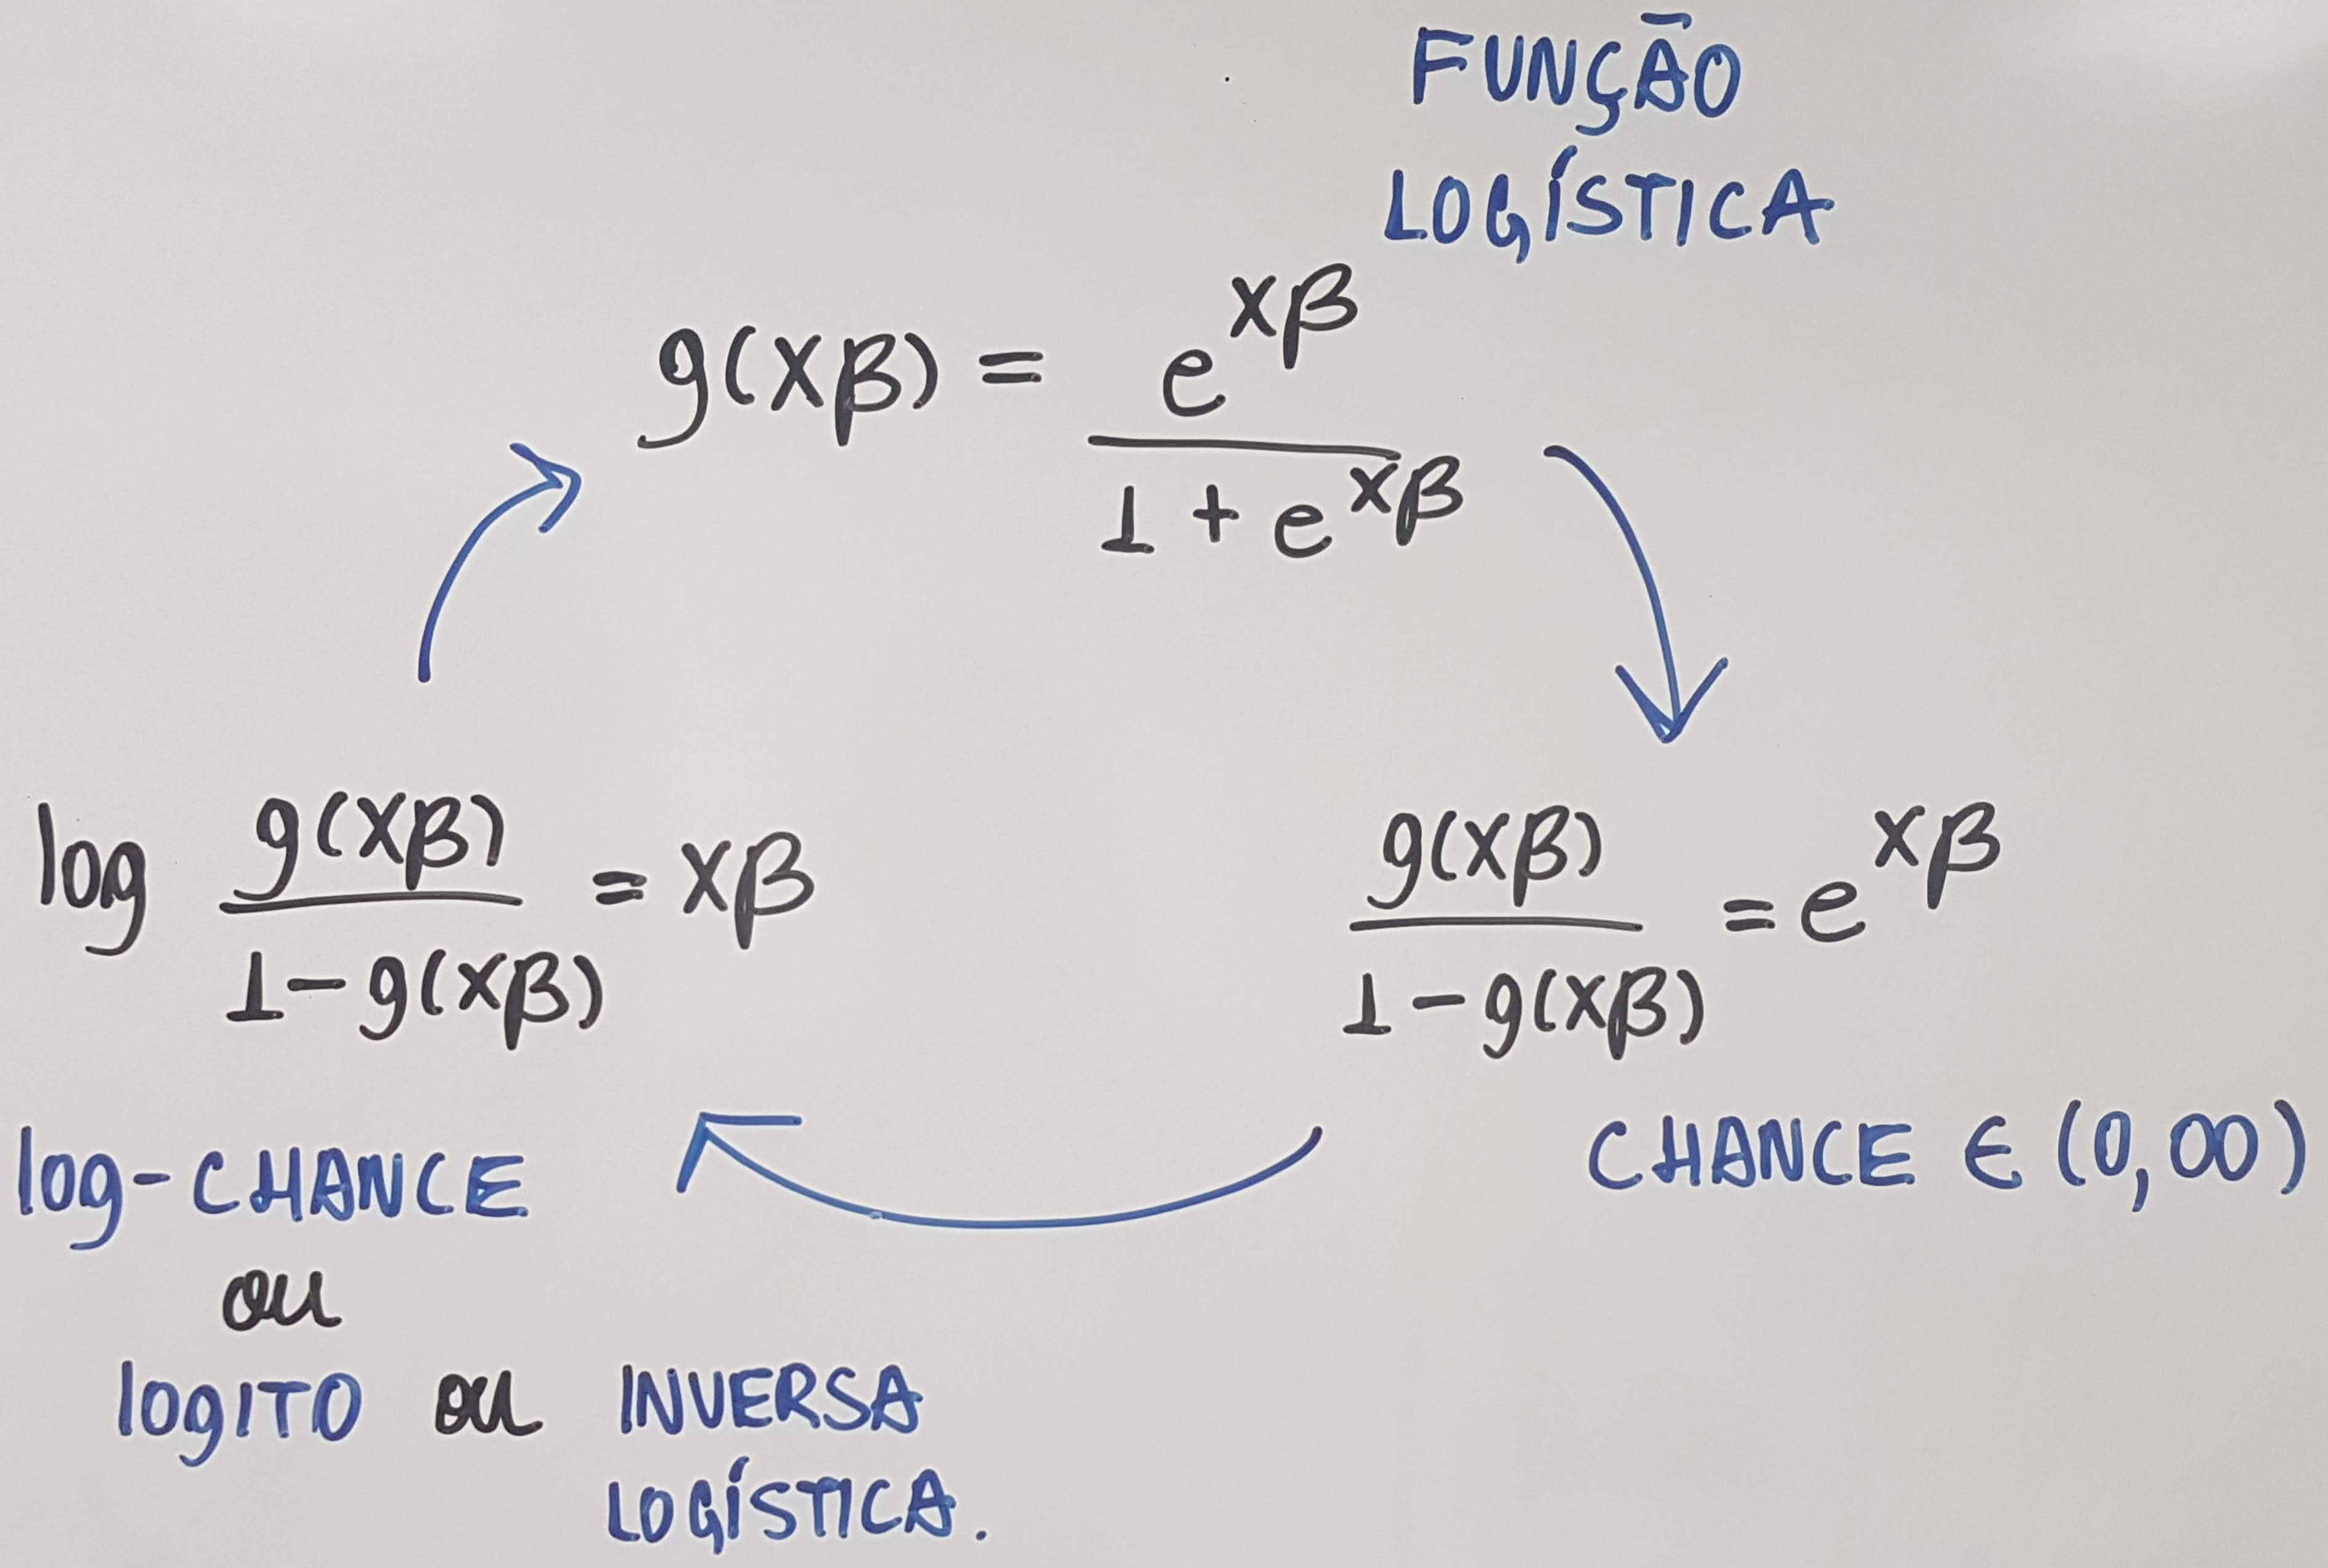 FUNÇÃO
LOGÍSTICA
g(Xβ) = e^{Xβ} / (1 + e^{Xβ})
log g(Xβ) / (1 - g(Xβ)) = Xβ
g(Xβ) / (1 - g(Xβ)) = e^{Xβ}
CHANCE ∈ (0,∞)
log-CHANCE
ou
logITO ou INVERSA
LOGÍSTICA.